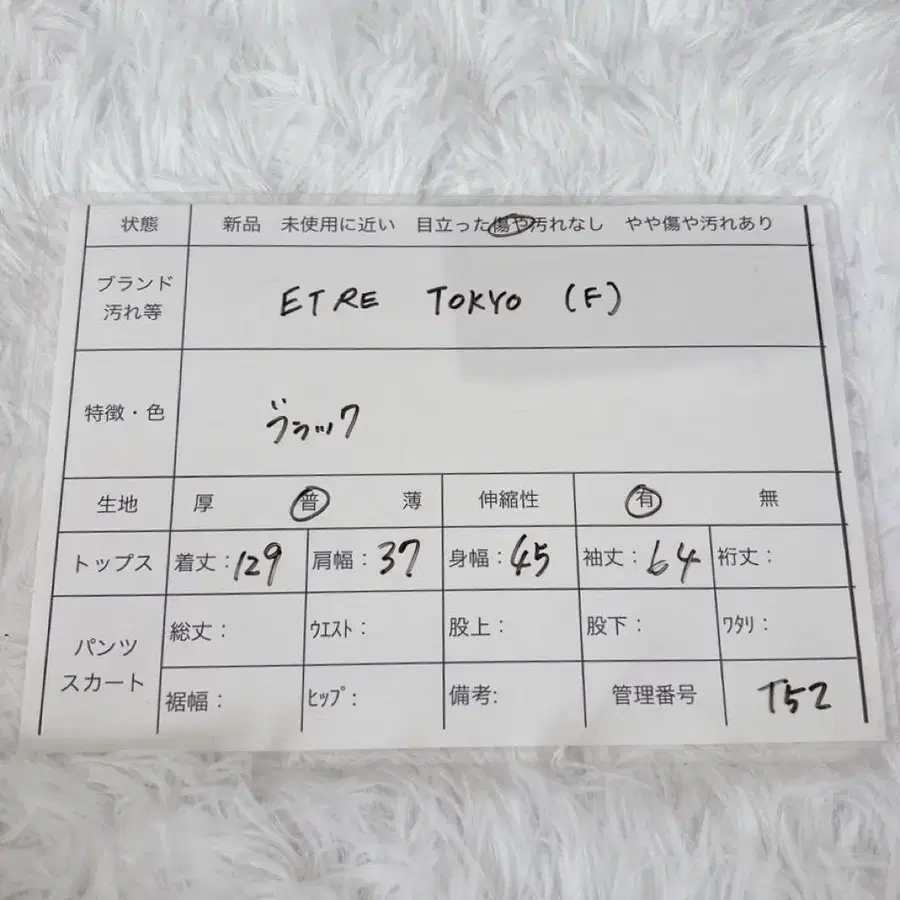 状態 新品 未使用に近い 目立った傷や汚れなし やや傷や汚れあり
ブランド
汚れ等
ETRE TOKYO (F)
特徴・色
ブラック
生地 厚 普 薄 伸縮性 有 無
トップス 着丈：129 肩幅：37 身幅：45 袖丈：64 裄丈：
パンツ
スカート
総丈： ｳｴｽﾄ： 股上： 股下： ﾜﾀﾘ：
裾幅： ﾋｯﾌﾟ： 備考: 管理番号 T52